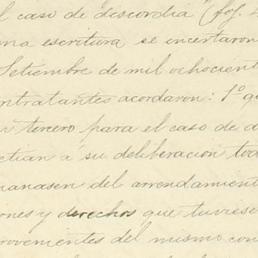 el caso de discordia" (fof.
na escritura se incertaron
Setiembre de mil ochocient
ntratantes acordaron: 1º qu
n tercero para el caso de d
etian á su deliberacion tod
manasen del arrendamient
ones y derechos que tuviese
rovenientes del mismo con